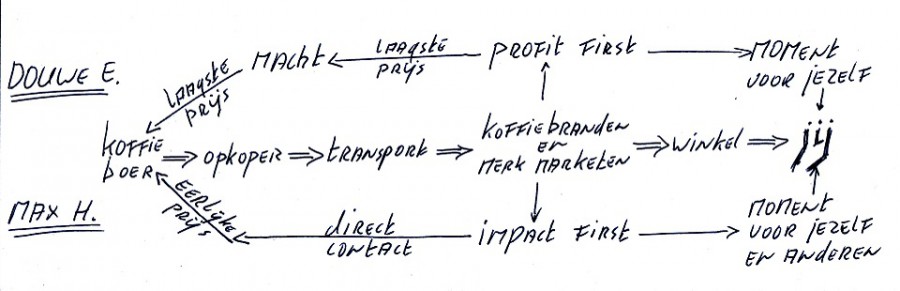 DOUWE E.
MACHT
LAAGSTE
PRIJS
PROFIT FIRST
MOMENT
VOOR JEZELF
LAAGSTE
PRIJS
KOFFIE
BOER
OPKOPER
TRANSPORT
KOFFIEBRANDEN
EN
MERK MARKETEN
WINKEL
jij
MAX H.
EERLIJKE
PRIJS
DIRECT
CONTACT
IMPACT FIRST
MOMENT
VOOR JEZELF
EN ANDEREN